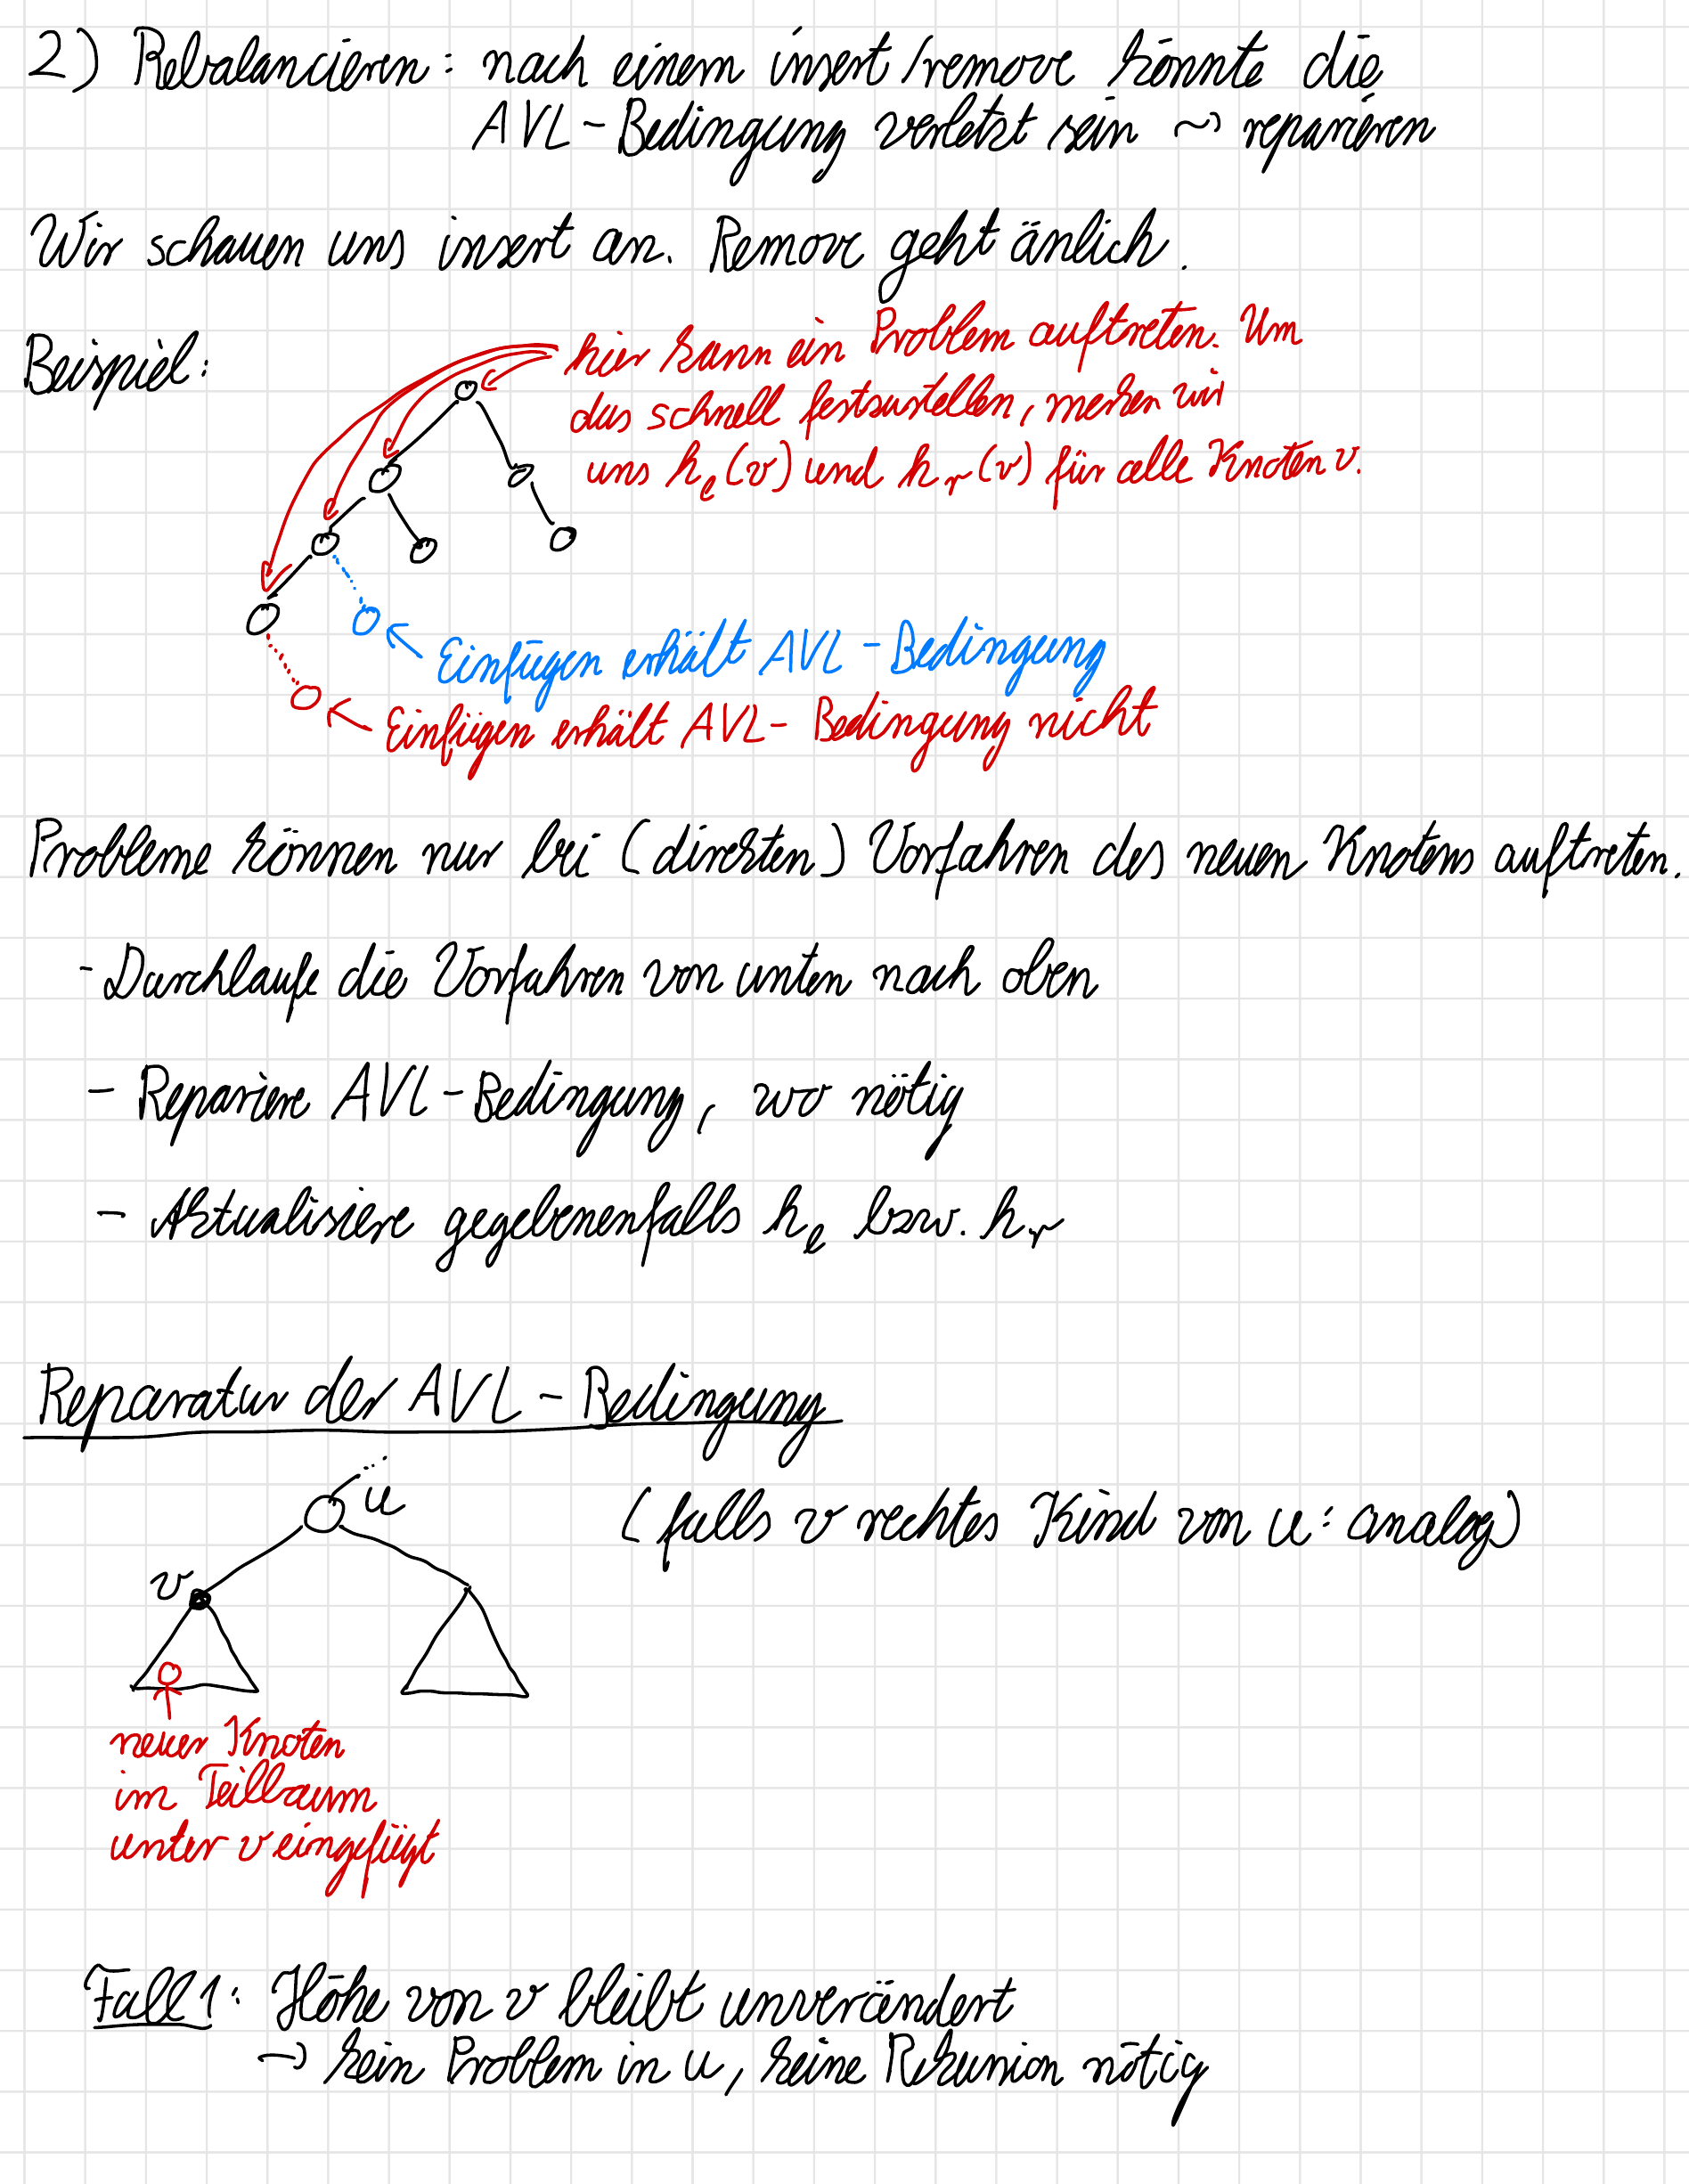 2) Rebalancieren: nach einem insert/remove könnte die
AVL-Bedingung verletzt sein ⤳ reparieren
Wir schauen uns insert an. Remove geht änlich.
Beispiel:
hier kann ein Problem auftreten. Um
das schnell festzustellen, merken wir
uns hₗ(v) und hᵣ(v) für alle Knoten v.
Einfügen erhält AVL-Bedingung
Einfügen erhält AVL-Bedingung nicht
Probleme können nur bei (direkten) Vorfahren des neuen Knotens auftreten.
- Durchlaufe die Vorfahren von unten nach oben
- Repariere AVL-Bedingung, wo nötig
- Aktualisiere gegebenenfalls hₗ bzw. hᵣ
Reparatur der AVL-Bedingung
u
(falls v rechtes Kind von u: analog)
v
neuer Knoten
im Teilbaum
unter v eingefügt
Fall 1: Höhe von v bleibt unverändert
→ kein Problem in u, keine Rekursion nötig